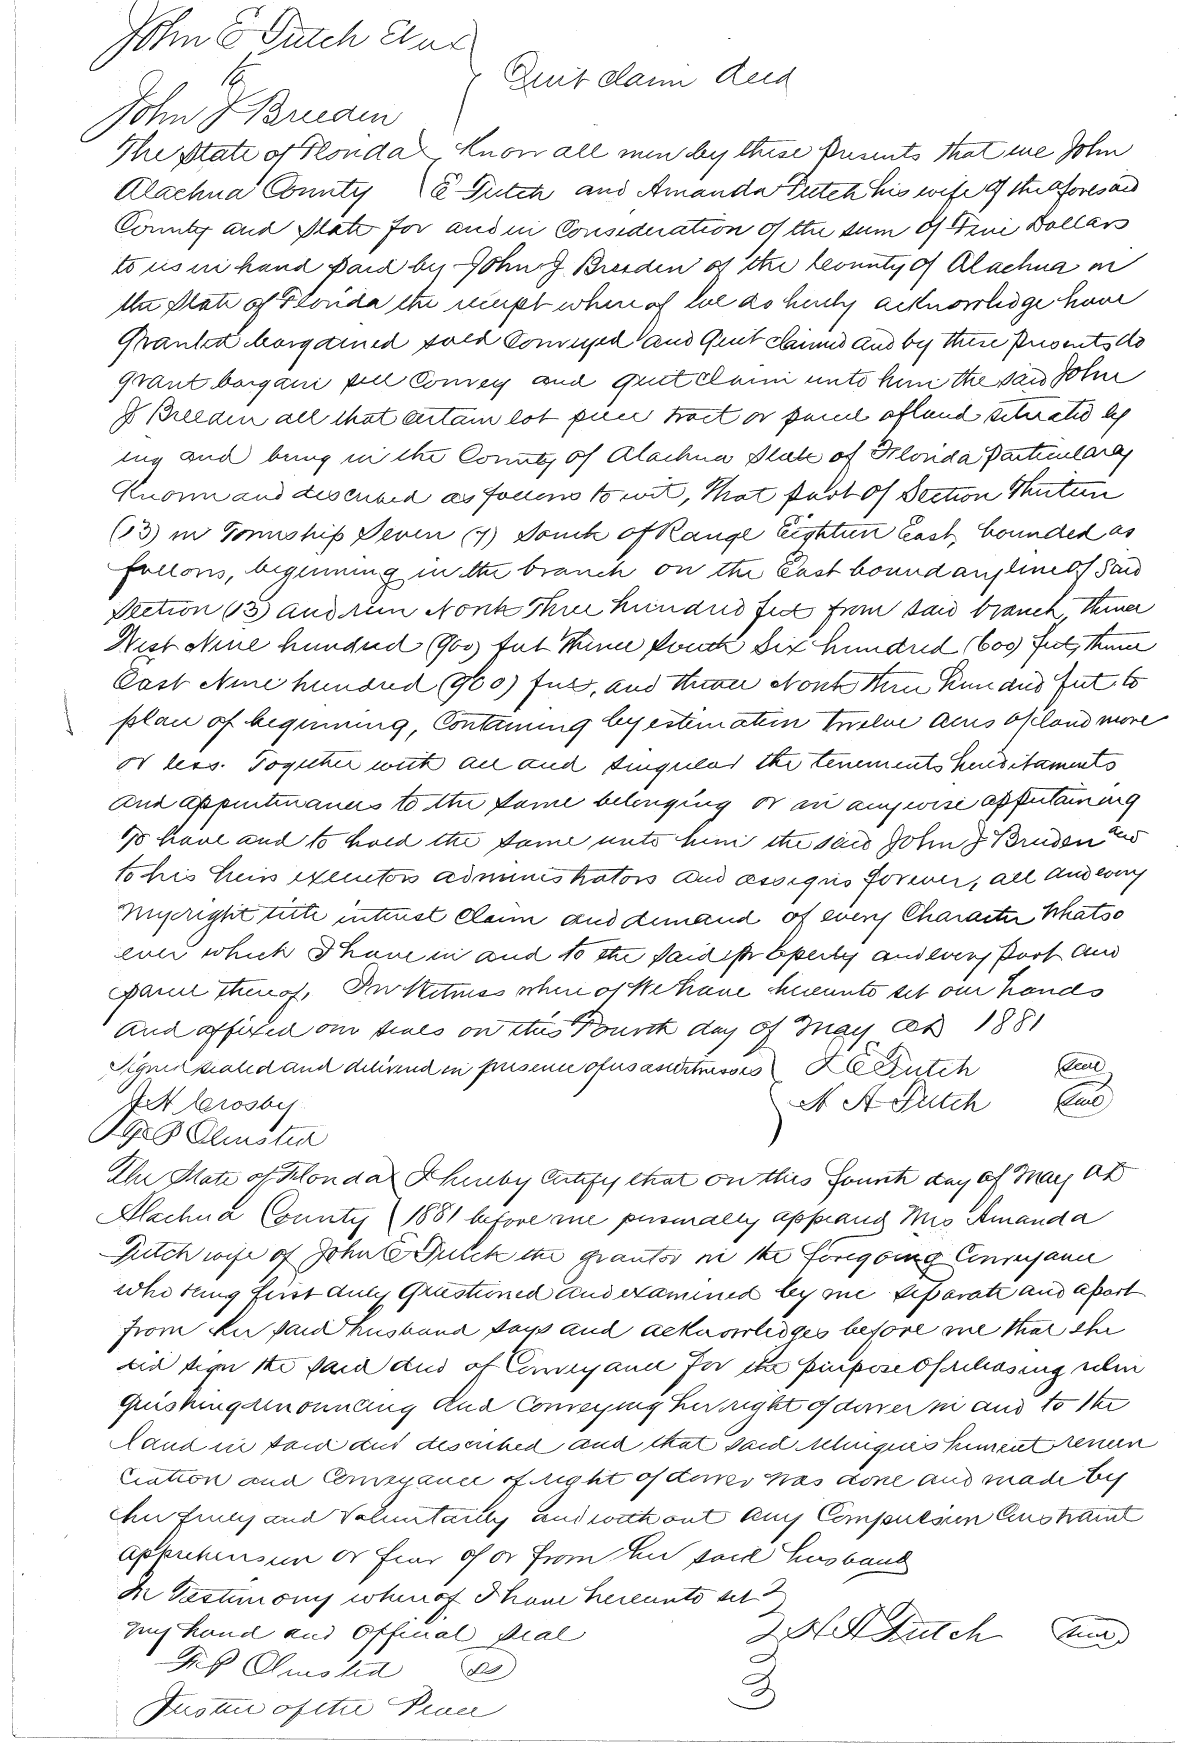 John E Futch Et ux
to
Quit claim deed
John J Breeden
The State of Florida Know all men by these Presents that we John
Alachua County E Futch and Amanda Futch his wife of the aforesaid
County and State for and in Consideration of the sum of Five Dollars
to us in hand paid by John J Breeden of the County of Alachua in
the State of Florida the receipt where of we do hereby acknowledge have
Granted bargained sold Conveyed and Quit claimed and by these presents do
grant bargain sell Convey and quit claim unto him the said John
J Breeden all that certain lot piece tract or parcel of land situated ly
ing and being in the County of Alachua State of Florida Particularly
Known and described as follows to wit, That part of Section Thirteen
(13) in Township Seven (7) South of Range Eighteen East, bounded as
follows, beginning in the branch on the East boundary line of said
Section (13) and run North Three hundred feet from said branch, thence
West Nine hundred (900) feet thence South Six hundred (600) feet, thence
East Nine hundred (900) feet, and thence North three hundred feet to
place of beginning, Containing by estimation twelve acres of land more
or less. Together with all and singular the tenements hereditaments
and appurtenances to the same belonging or in anywise appertaining
To have and to hold the same unto him the said John J Breeden and
to his heirs executors administrators and assigns forever, all and every
my right title interest claim and demand of every Character Whatso
ever which I have in and to the said property and every part and
parcel thereof, In Witness where of We have hereunto set our hands
and affixed our seals on this Fourth day of May AD 1881
Signed sealed and delivered in presence of us as witnesses J E Futch Seal
J A Crosby A A Futch Seal
F P Olmsted
The State of Florida I hereby Certify that on this fourth day of May AD
Alachua County 1881 before me personally appeard Mrs Amanda
Futch wife of John E Futch the grantor in the foregoing Conveyance
who being first duly Questioned and examined by me separate and apart
from her said husband says and acknowledges before me that she
did sign the said deed of Conveyance for the purpose of releasing relin
quishing renouncing and Conveying her right of dower in and to the
land in said deed described and that said relinquishment renun
ciation and Conveyance of right of dower was done and made by
her freely and Voluntarily and with out any Compulsion Constraint
apprehension or fear of or from her said husband
In Testimony whereof I have hereunto set
my hand and Official seal A A Futch Seal
F P Olmsted LS
Justice of the Peace